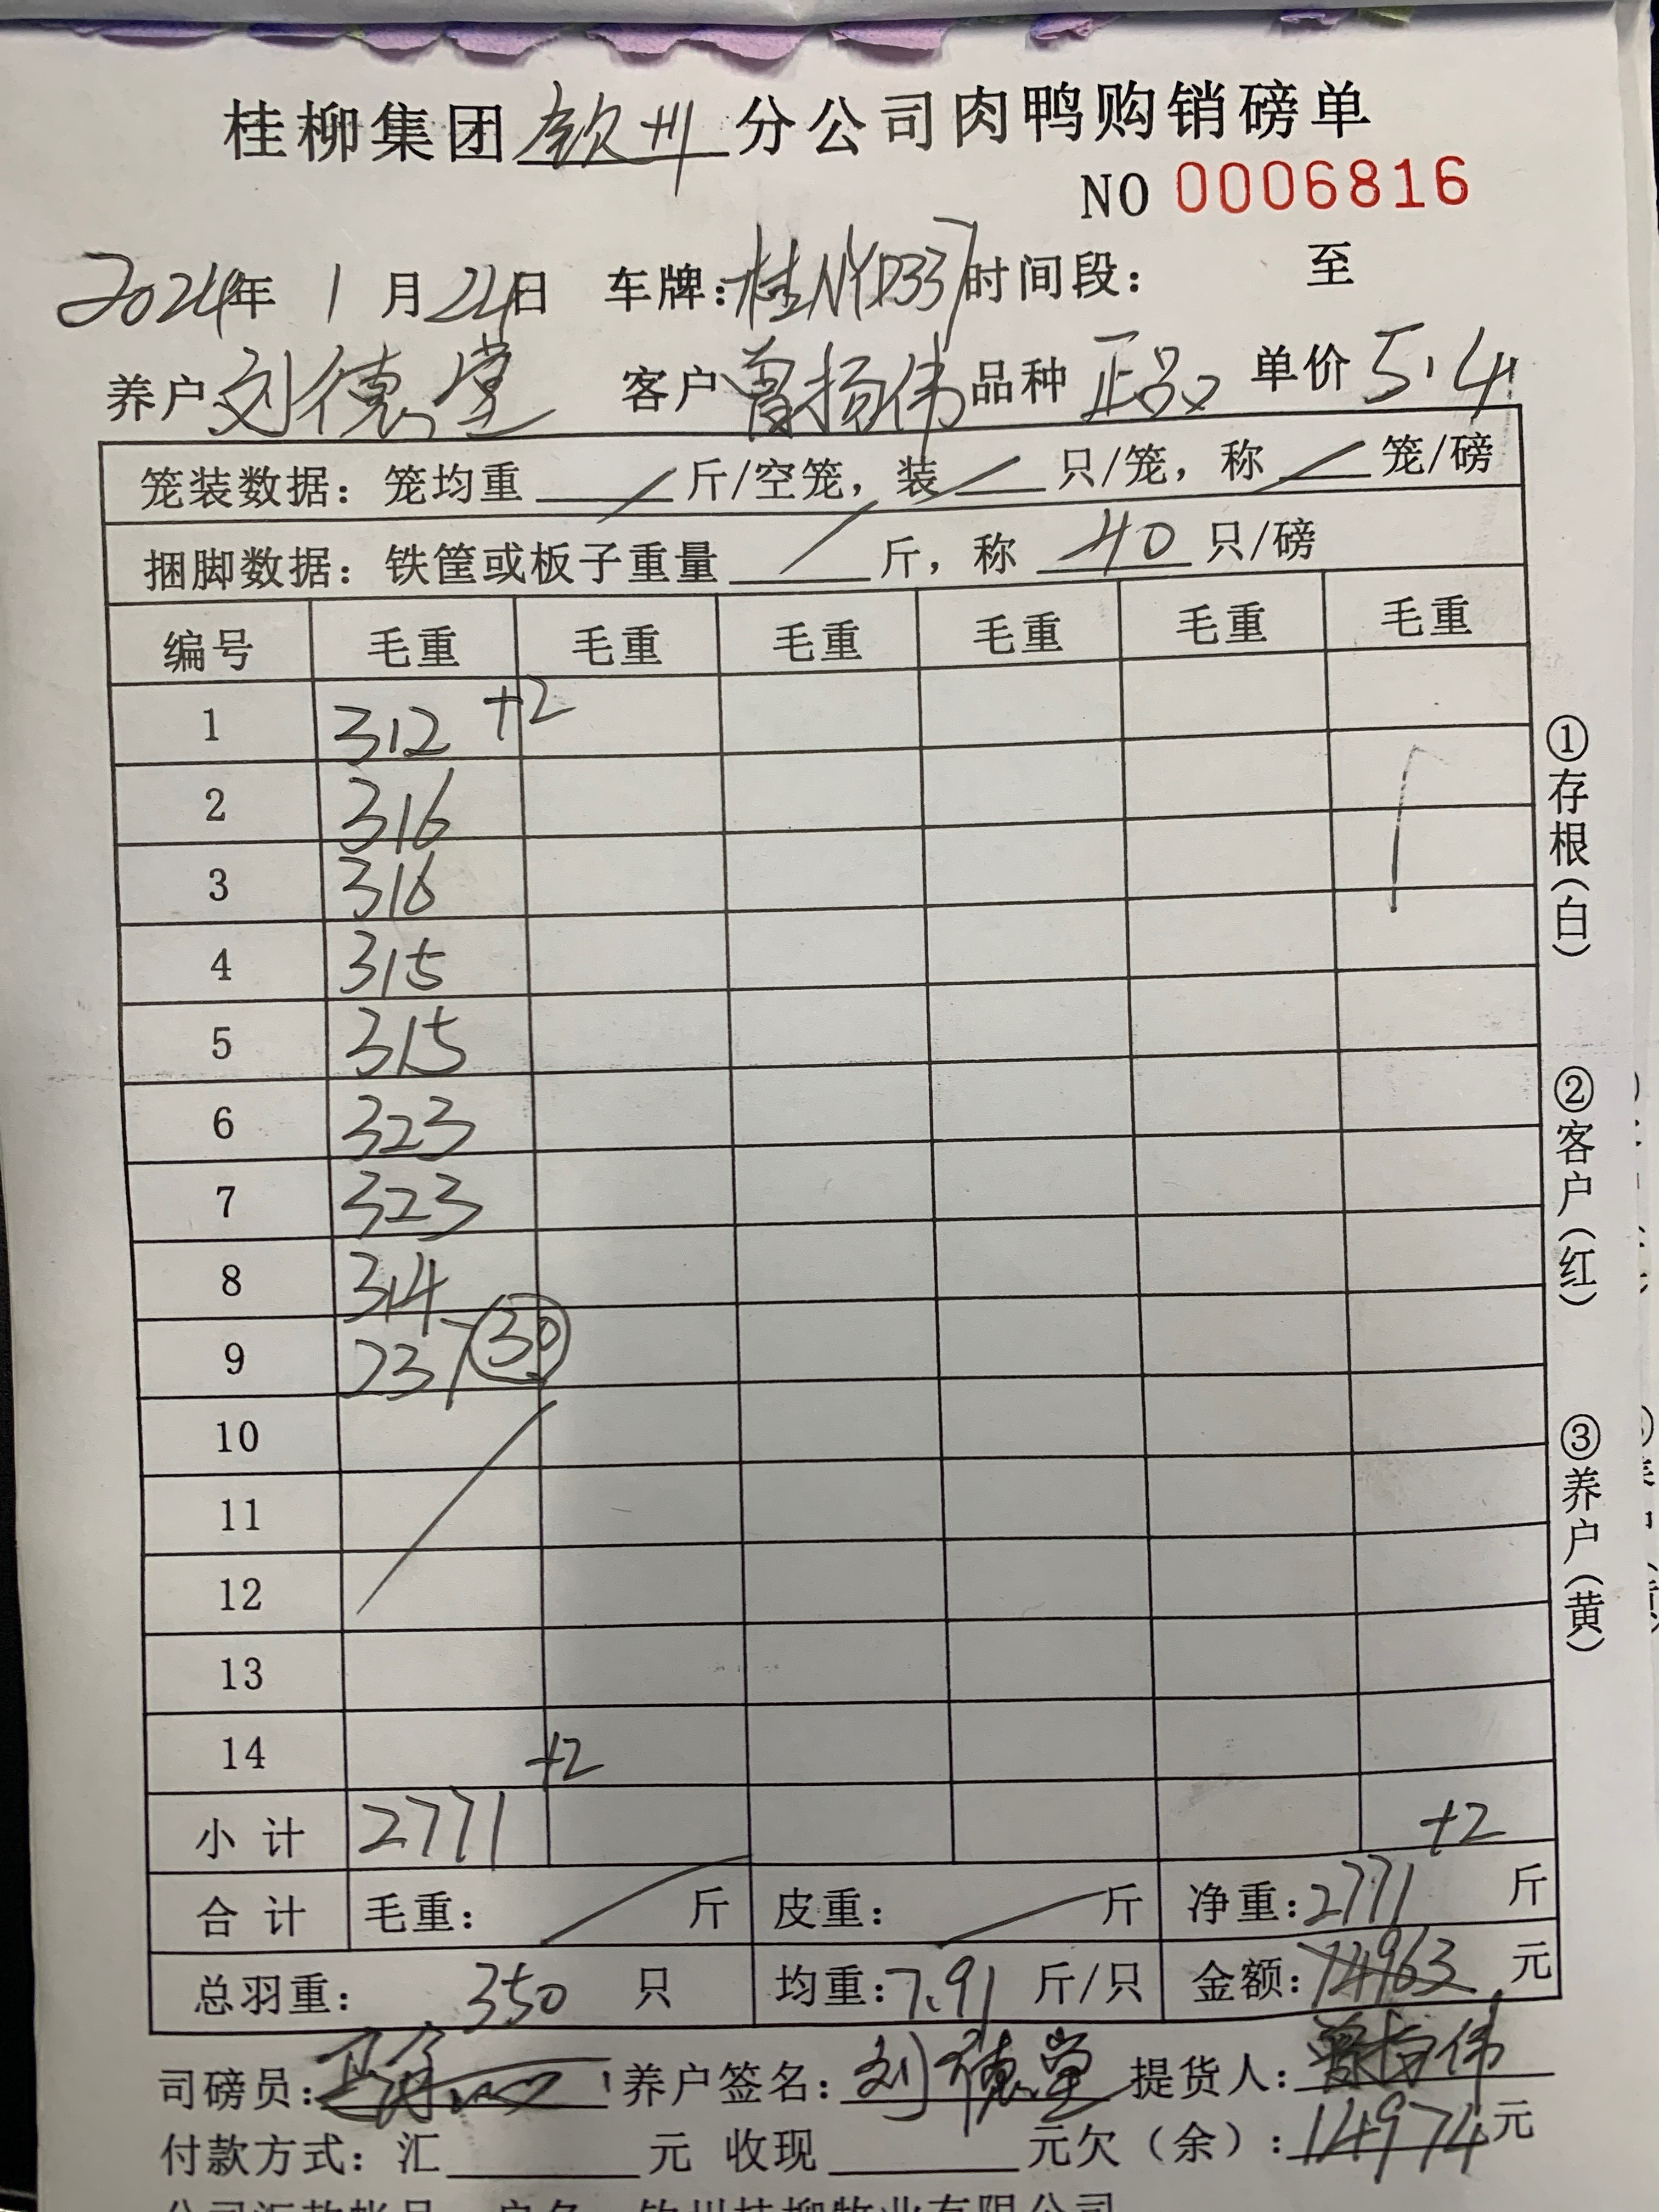 桂柳集团钦州分公司肉鸭购销磅单
NO 0006816
2024年 1 月 24日 车牌:桂NYD337 时间段: 至
养户 刘德堂 客户 曾扬伟 品种 正品 单价 5.4
笼装数据: 笼均重 / 斤/空笼, 装 / 只/笼, 称 / 笼/磅
捆脚数据: 铁筐或板子重量 / 斤, 称 40 只/磅
编号 毛重 毛重 毛重 毛重 毛重 毛重
1 312 +2
2 316
3 316
4 315
5 315
6 323
7 323
8 314
9 237 30
10
11
12
13
14 +2
小计 2771 +2
合计 毛重: / 斤 皮重: / 斤 净重:2771 斤
总羽重: 350 只 均重:7.91 斤/只 金额:14963 元
司磅员: 养户签名: 刘德堂 提货人: 曾扬伟
付款方式: 汇 元 收现 元欠(余): 14974 元
①存根(白)
②客户(红)
③养户(黄)